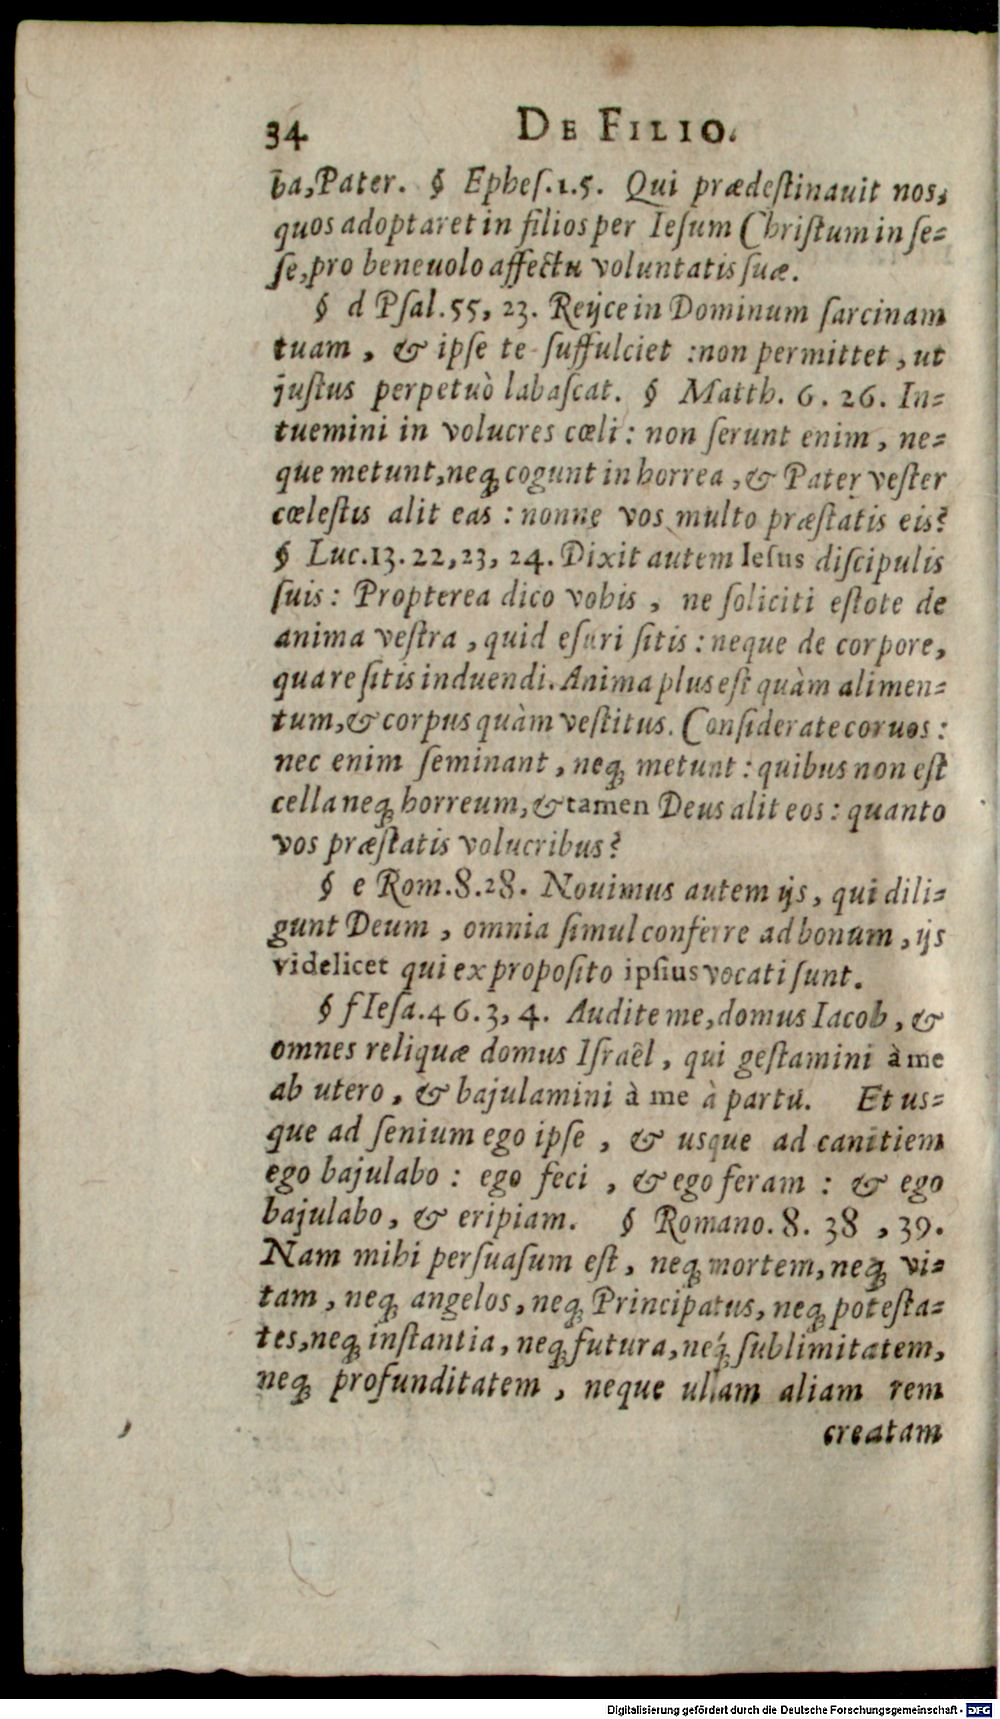 34 DE FILIO.
ba, Pater. § Epheſ. 1. 5. Qui prædeſtinavit nos,
quos adoptaret in filios per Ieſum Chriſtum in ſe-
ſe, pro beneuolo affectu voluntatis ſuæ.
§ d Pſal. 55, 23. Reijce in Dominum ſarcinam
tuam, & ipſe te ſuffulciet : non permittet, ut
juſtus perpetuò labaſcat. § Matth. 6. 26. In-
tuemini in volucres cœli : non ſerunt enim, ne-
que metunt, neq; cogunt in horrea, & Pater veſter
cœleſtis alit eas : nonne vos multo præſtatis eis?
§ Luc. 13. 22, 23, 24. Dixit autem Ieſus diſcipulis
ſuis : Propterea dico vobis, ne ſoliciti eſtote de
anima veſtra, quid eſuri ſitis : neque de corpore,
qua re ſitis induendi. Anima plus eſt quàm alimen-
tum, & corpus quàm veſtitus. Conſiderate coruos :
nec enim ſeminant, neq; metunt : quibus non eſt
cella neq; horreum, & tamen Deus alit eos : quanto
vos præſtatis volucribus?
§ e Rom. 8. 28. Nouimus autem ijs, qui dili-
gunt Deum, omnia ſimul conferre ad bonum, ijs
videlicet qui ex propoſito ipſius vocati ſunt.
§ f Ieſa. 46. 3, 4. Audite me, domus Iacob, &
omnes reliquæ domus Iſraêl, qui geſtamini à me
ab utero, & bajulamini à me à partu. Et us-
que ad ſenium ego ipſe, & usque ad canitiem
ego bajulabo : ego feci, & ego feram : & ego
bajulabo, & eripiam. § Romano. 8. 38, 39.
Nam mihi perſuaſum eſt, neq; mortem, neq; vi-
tam, neq; angelos, neq; Principatus, neq; poteſta-
tes, neq; inſtantia, neq; futura, neq́; ſublimitatem,
neq; profunditatem, neque ullam aliam rem
creatam
Digitalisierung gefördert durch die Deutsche Forschungsgemeinschaft - DFG